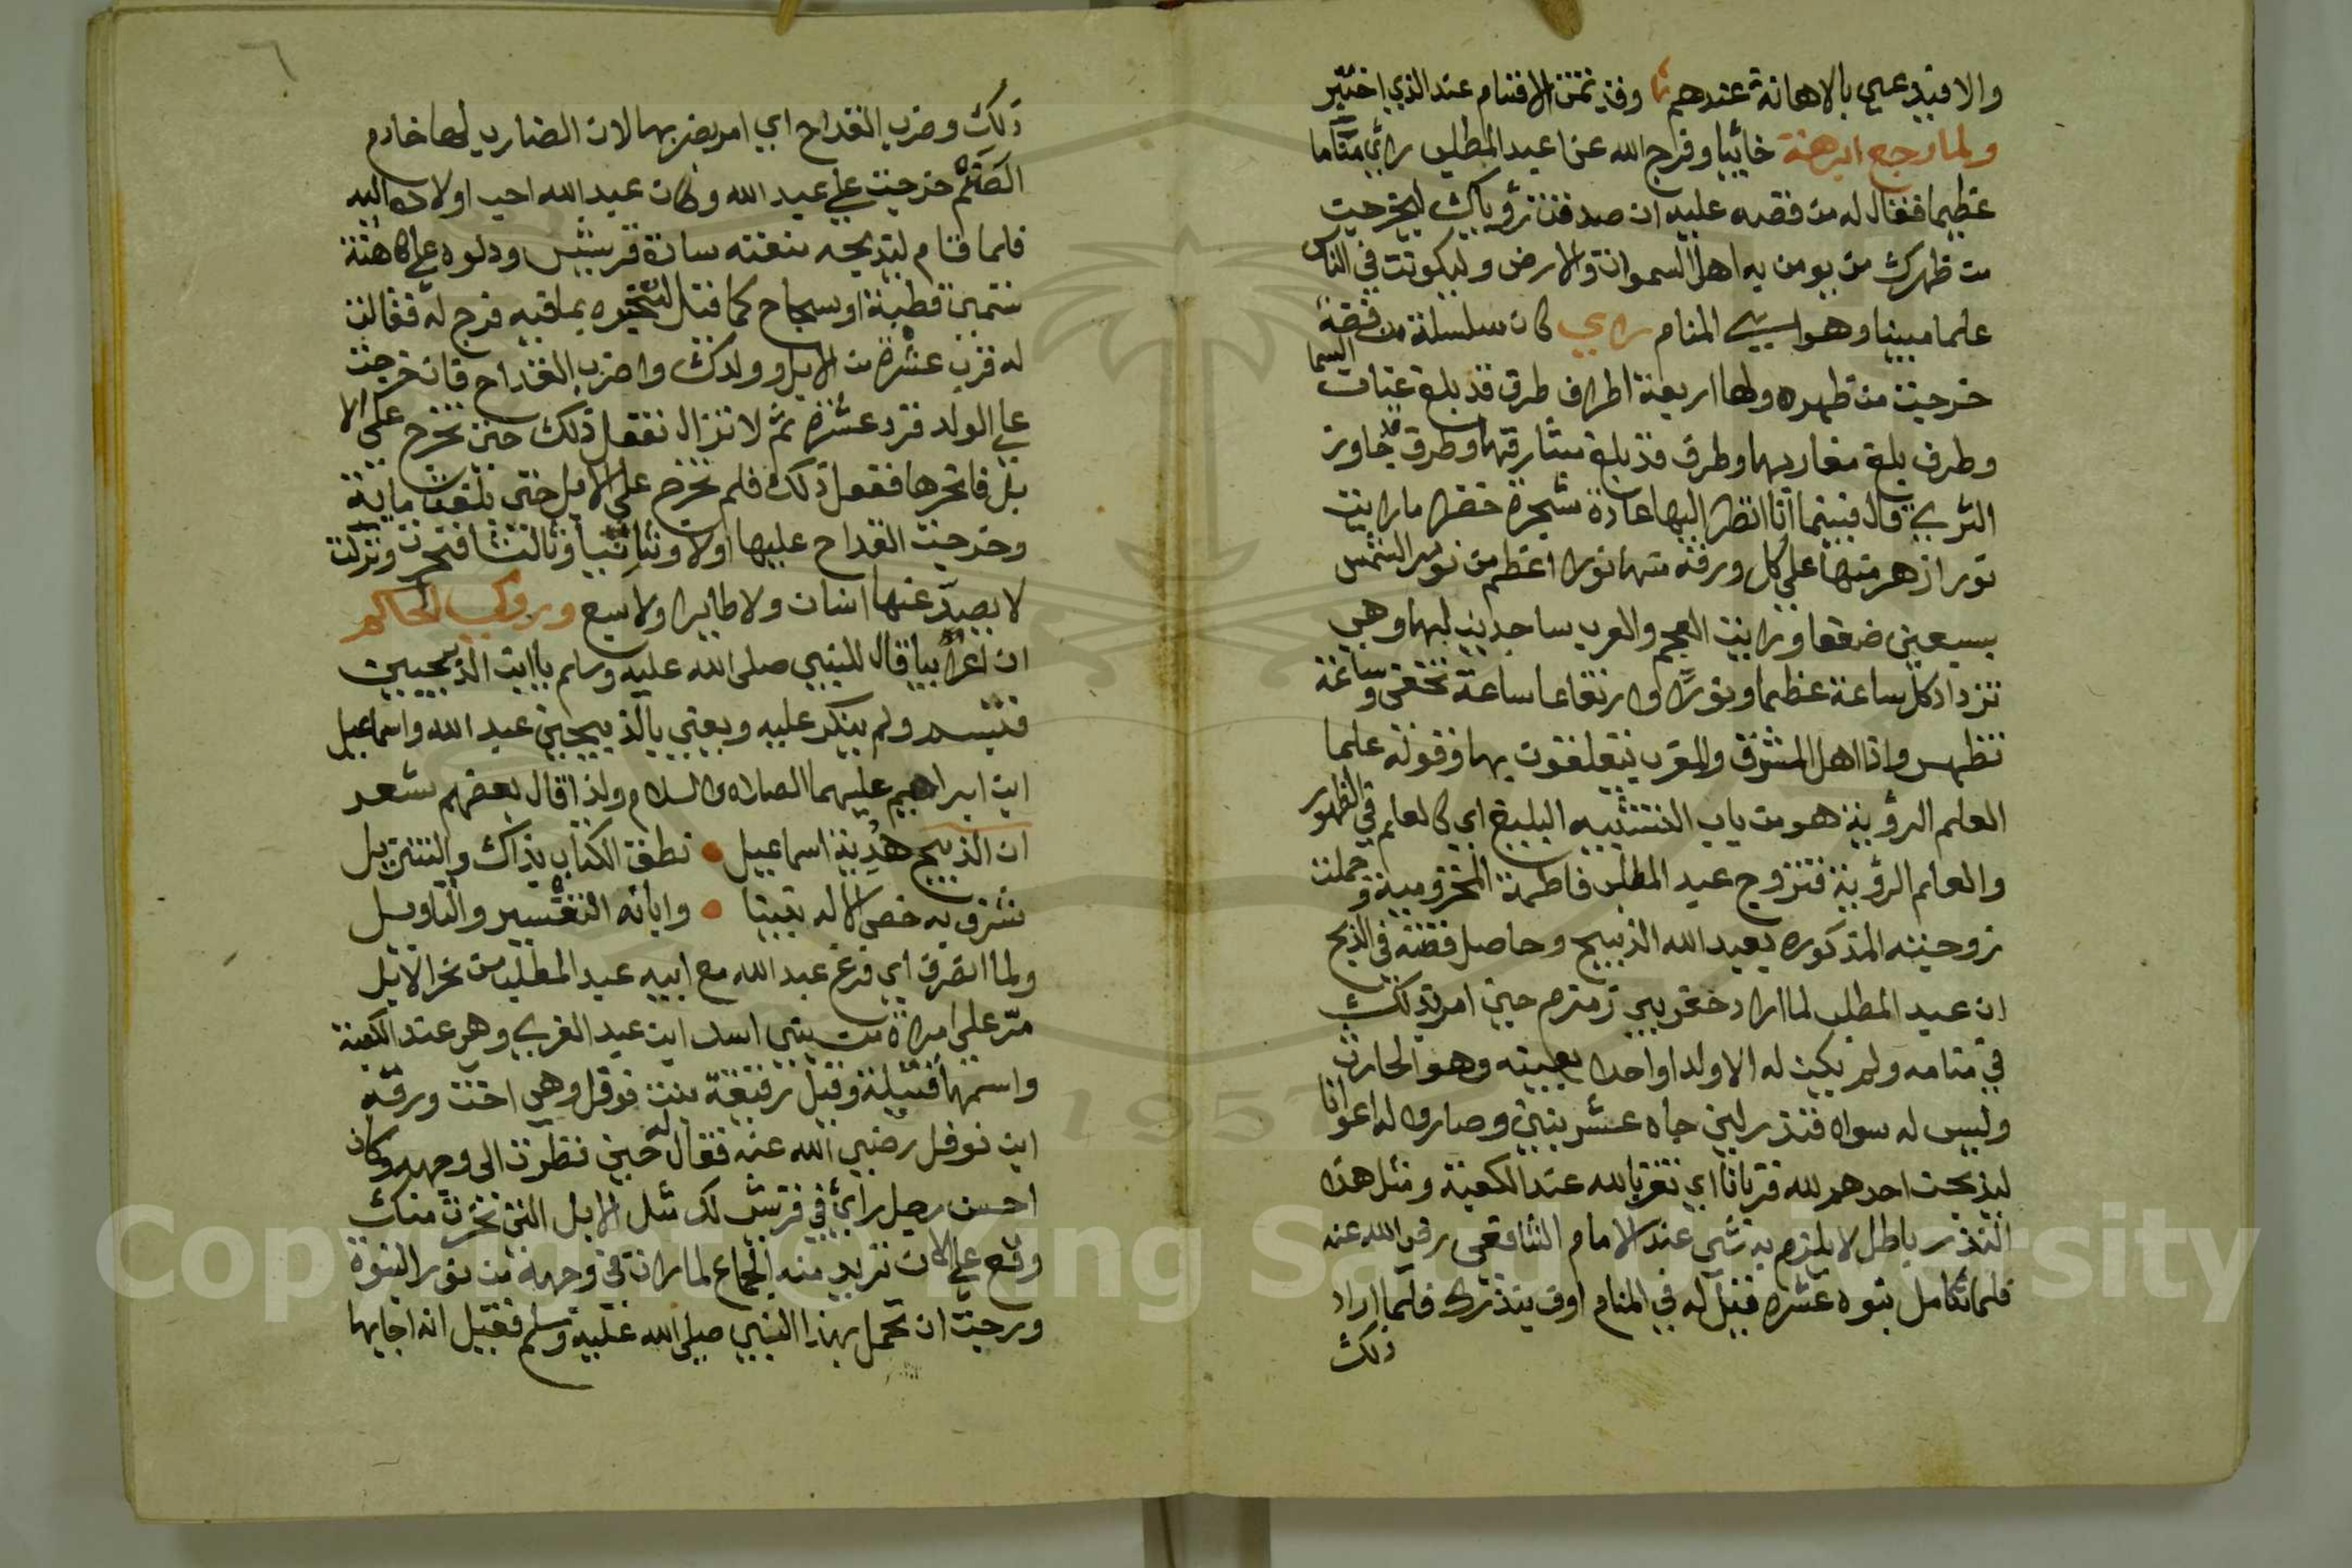 ولما رجع ابرهة خائبا وفرج الله عن عبد المطلب راي مناما
عظيما فقال له من قصه عليه ان صدقت رؤياك ليخرجن
من ظهرك من يومن به اهل السموات والارض وليكونن في الناس
علما مبينا وهو اسية المنام راي كان سلسلة من فضة
السما
خرجت من ظهره ولها اربعة اطراف طرف قد بلغ عنان
وطرف بلغ مغاربها وطرف قد بلغ مشارقها وطرف قد جاوز
الثري قال فبينما انا انظر اليها عادة شجرة خضرا ما رايت
نورا زهر منها علي كل ورقة منها نورا اعظم من نور الشمس
بسبعين ضعفا ورايت العجم والعرب ساجدين لها وهي
تزداد كل ساعة عظما ونورا وارتفاعا ساعة تخفي وساعة
تظهر واذا اهل المشرق والمغرب يتعلقون بها وقوله علما
العلم الروية هو من باب التشبيه البليغ اي كالعلم في الظهور
والعالم الروية فتزوج عبد المطلب فاطمة المخزومية وحملت
زوجته المذكورة بعبد الله الذبيح وحاصل قصته في الذبح
ان عبد المطلب لما اراد حفر بير زمزم حين امر بذلك
في منامه ولم يكن له الا ولدا واحدا يعينه وهو الحارث
وليس له سواه فنذر لين جاه عشر بنين وصاروا له اعوانا
ليذبحن احدهم لله قربانا اي تقربا لله عند الكعبة ومثل هذا
النذر باطل لا يلزم به شي عند الامام الشافعي رضي الله عنه
فلما تكامل بنوه عشرة قيل له في المنام اوف بنذرك فلما اراد
ذلك
٦
ذلك وضرب القداح اي امر يضربها لان الضارب لها خادم
الصنم خرجت علي عبد الله وكان عبد الله احب اولاده اليه
فلما قام ليذبحه منعته سادة قريش ودلوه علي كاهنة
تسمي قطبة او سجاح كما قيل لتخبره بما فيه فرج له فقالت
له قرب عشرة من الابل وولدك واضرب القداح فان خرجت
علي الولد فزد عشرة ثم لا تزال تفعل ذلك حتي تخرج علي الا
بل فانحرها ففعل ذلك فلم تخرج علي الابل حتي بلغت ماية
وخرجت القداح عليها اولا وثانيا وثالثا فنحرت ونزلت
لا يصد عنها انسان ولا طايرا ولا سبع وروي الحاكم
ان اعرابيا قال للنبي صلى الله عليه وسلم يا ابن الذبيحين
فتبسم ولم ينكر عليه ويعني بالذبيحين عبد الله واسماعيل
ابن ابراهيم عليهما الصلاة والسلام ولذا قال بعضهم شعر
ان الذبيح هديت اسماعيل نطق الكتاب بذاك والتنزيل
شرف به خص الاله نبينا وابانه التفسير والتاويل
ولما انصرف اي فرغ عبد الله مع ابيه عبد المطلب من نحر الابل
مر علي امراة من بني اسد ابن عبد العزي وهي عند الكعبة
واسمها قتيلة وقيل رقيقة بنت نوفل وهي اخت ورقه
ابن نوفل رضي الله عنه فقال له حين نظرت الى وجهه وكان
احسن رجل راي في قريش لك مثل الابل التي نحرت عنك
وقع علي الان تريد منه الجماع لما رات في وجهه من نور النبوة
ورجت ان تحمل بهذا النبي صلى الله عليه وسلم فقيل انه اجابها